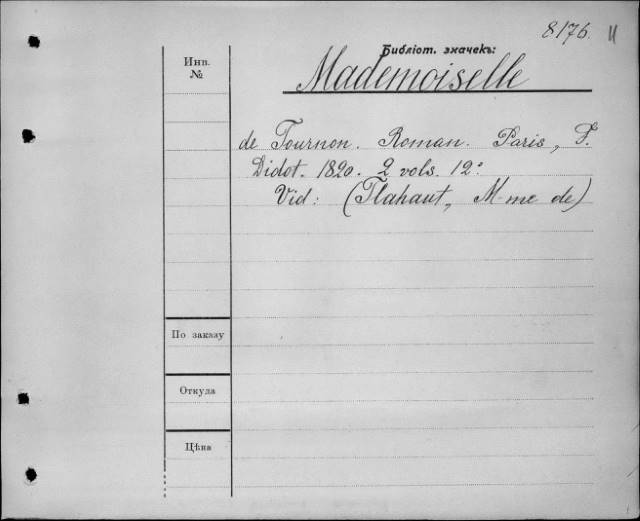 8176. 11
Библіот. значекъ:
Инв.
№
Mademoiselle
de Tournon. Roman. Paris, F.
Didot. 1820. 2 vols. 12º
Vid: (Flahaut, M-me de)
По заказу
Откуда
Цѣна